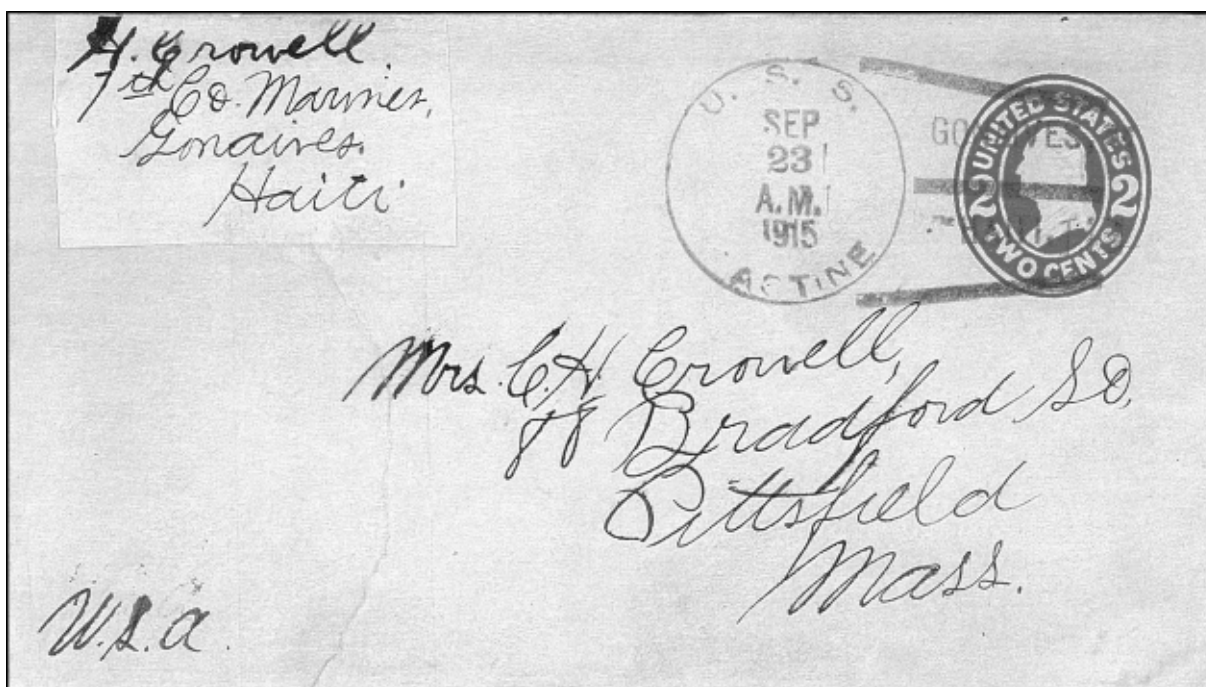 H. Crowell.
7th Co. Marines,
Gonaives.
Haiti
U. S. S.
SEP
23
A.M.
1915
ASTINE
GONAIVES
UNITED STATES
2 2
TWO CENTS
Mrs. C.H. Crowell,
Bradford St,
Pittsfield
Mass.
U.S.A.